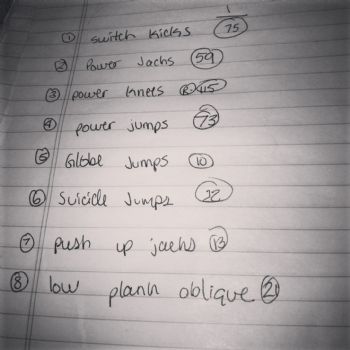 1
① switch kicks 75
② Power Jacks 59
③ power knees R 45
④ power jumps 73
⑤ Globe Jumps 10
⑥ Suicide Jumps 22
⑦ push up jacks 13
⑧ low plank oblique 21